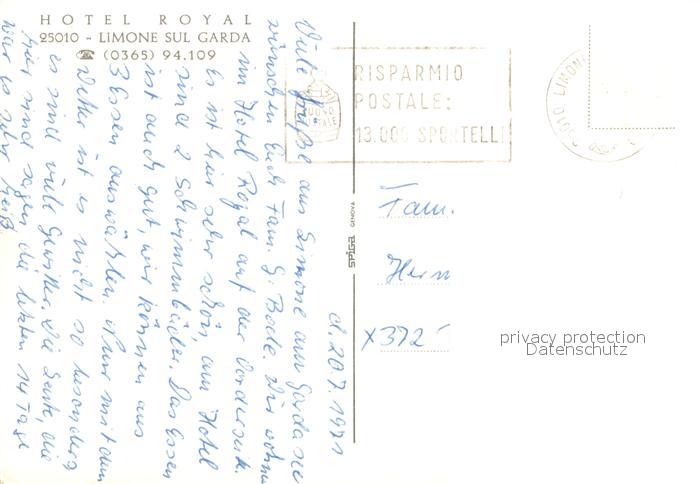 HOTEL ROYAL
25010 - LIMONE SUL GARDA
☎ (0365) 94.109
d. 20.7. 1971
Viele Grüße aus Limone am Gardasee
wünschen Euch Fam. G. Bode. Wir wohnen
im Hotel Royal auf der Vorderseite.
Es ist hier sehr schön, am Hotel
sind 2 Schwimmbäder. Das Essen
ist auch gut, wir können aus
3 Essen auswählen. Nur mit dem
Wetter ist es nicht so besonders
es sind viele Gewitter. Die Leute, die
hier sind sagen die letzten 14 Tage
war es sehr heiß
RISPARMIO
POSTALE:
13.000 SPORTELLI
BUONO
POSTALE
25010 LIMONE
SPIGA GENOVA
Fam.
Herm
X372
privacy protection
Datenschutz